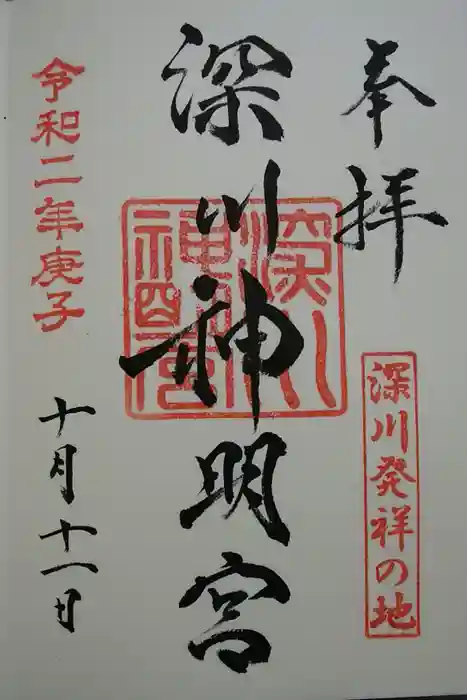 奉拝
深川発祥の地
深川神明宮
令和二年庚子
十月十一日